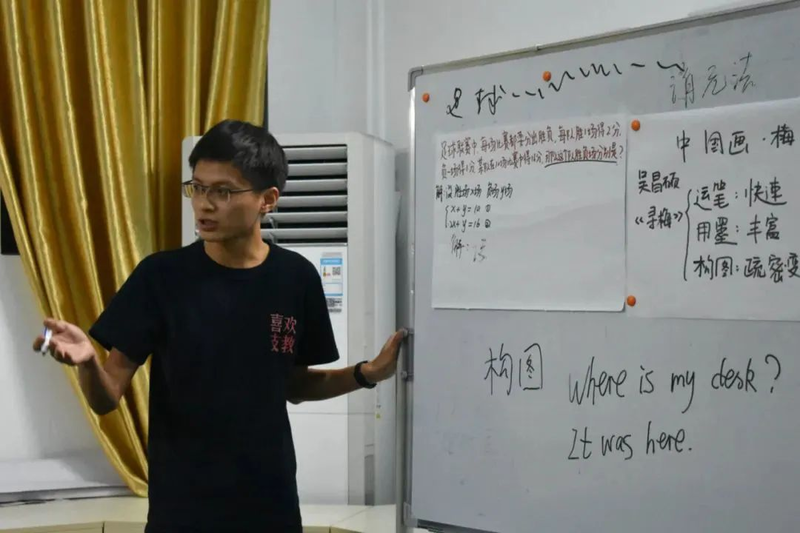 喜欢
支教
足球
消元法
足球联赛中,每场比赛都要分出胜负,每队胜1场得2分,
负一场得1分,某队在10场比赛中得16分,那么这个队胜负场数分别是?
解:设胜场x场 负场y场
x+y=10 ①
2x+y=16 ②
解:
中国画·梅
吴昌硕
《寻梅》
运笔:快速
用墨:丰富
构图:疏密变
构图
Where is my desk?
It was here.